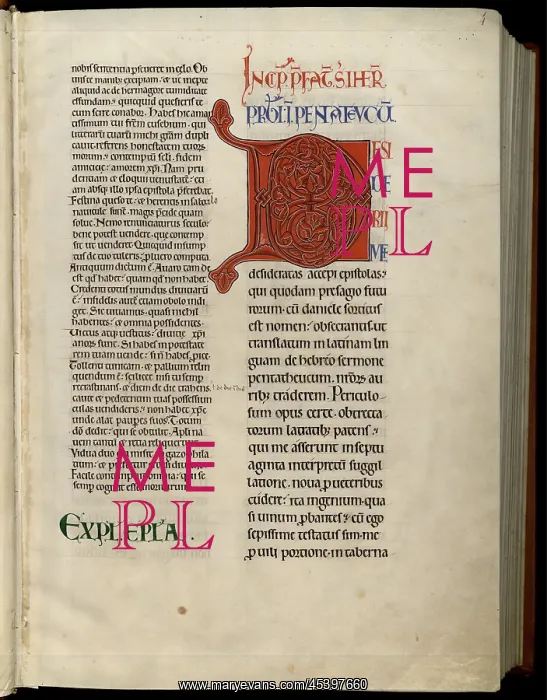 4
nobis sententia pseueret in celo. Ob
unsis manib; excipiam. & ut inepte
aliquid ac de hermagore tumiditate
effundam; quicquid quesieris te
cum scire conabor. Habes hic aman
tissimum tui frem eusebium. qui
litterarū tuarū michi grām dupli
cauit. referens honestatem tuorū
morum. contemptū scli. fidem
amicicię. amorem xpi. Nam pru
dentiam & eloquii uenustatē. &
am absq; illo ipsa epistola pferebat.
Festina quęso te. & herentis in salo
nauiculę funē. magis pcide quam
solue. Nemo renunciaturus seculo.
bene potest uendere. que contemp
sit ut uenderet. Quicquid in sump
tus de tuo tuleris. p lucro computa.
Antiquum dictum ē. Auaro tam de
est qd habet. quam qd non habet.
Credenti totus mundus diuitiarū
ē. infidelis autē etiam obolo indi
get. Sic uiuamus. quasi nichil
habentes. & omnia possidentes.
Uictus atq; uestitus. diuitię xpi
anorū sunt. Si habes in potestate
rem tuam uende. si ñ habes. pice.
Tollenti tunicam. & pallium relin
quendum ē. scilicet nisi tu semp
recrastinans. & diem de die trahens.
caute & pedetentim tuas possessiun
culas uendideris. non habet xpc
unde alat paupes suos. Totum
dō dedit. qui se obtulit. Apli na
uem tantū & retia reliquerunt.
Vidua duo misit gazophila
Facile contempnit omnia. qui se
semp cogitat esse moriturum.
EXPL EPLA.
INCP. PFAT. S. IHER.
PBRI. I. PENATEVCŪ.
DESI
DE
RII
MEI
desideratas accepi epistolas.
qui quodam presagio futu
rorum. cū daniele sortitus
est nomen. obsecrantis. ut
translatum in latinam lin
guam de hebreo sermone
pentatheucum. nrōrz au
rib; traderem. Periculo
sum opus certe. obtrecta
torum latratib; patens.
qui me asserunt in septu
aginta interpretū suggil
latione. noua p ueteribus
cudere. ita ingenium. qua
si uinum pbantes. cū ego
sepissime testatus sim. me
p uili portione. in taberna
ME
PL
ME
PL
www.maryevans.com/45397660